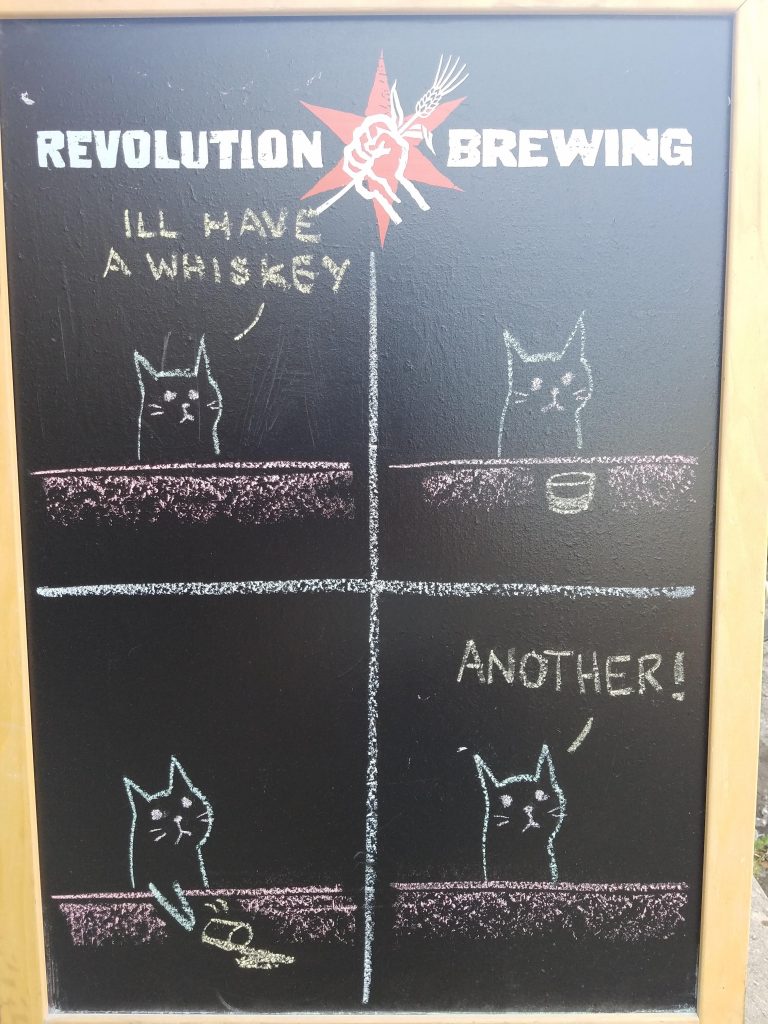 REVOLUTION BREWING
ILL HAVE
A WHISKEY
ANOTHER!